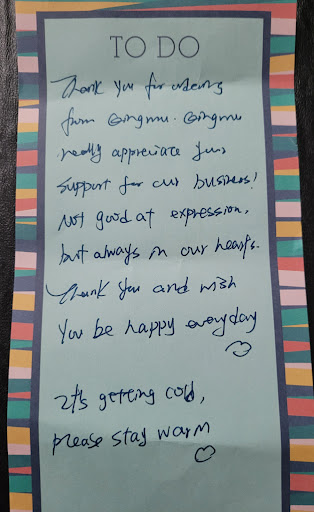 TO DO
Thank you for ordering
from Qingmu. Qingmu
really appreciate your
support for our business!
Not good at expression,
but always in our hearts.
Thank you and wish
you be happy everyday
It's getting cold,
please stay warm